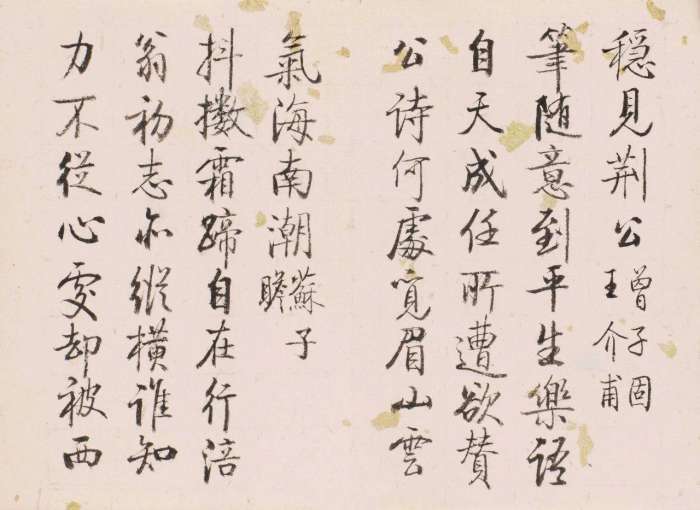 穩見荆公曾子固
王介甫
筆随意到平生樂語
自天成任所遭欲贊
公詩何處覓眉山雲
氣海南潮蘇子
瞻
抖擻霜蹄自在行涪
翁初志亦縱橫誰知
力不從心處却被西